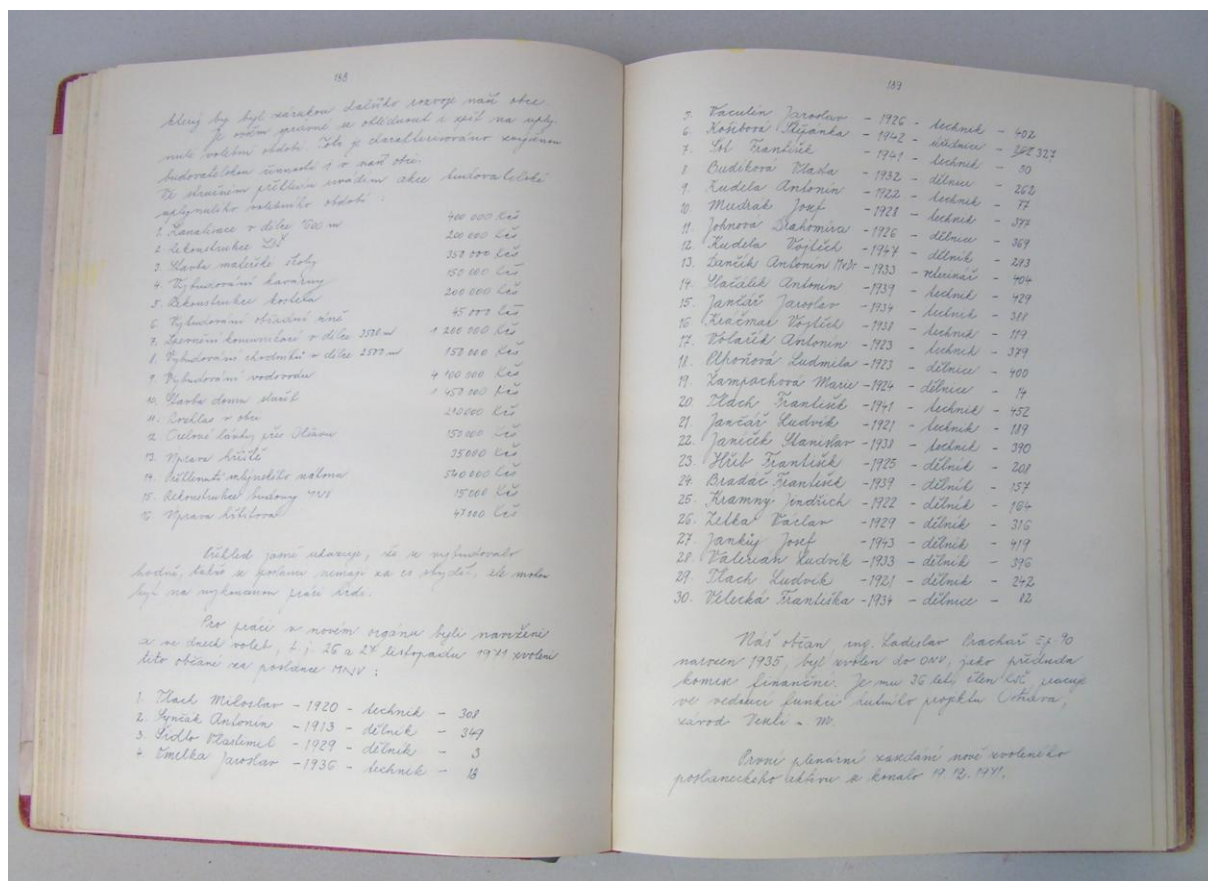 188
který by byl zárukou dalšího rozvoje naší obce.
Je ovšem správné se ohlédnout i zpět na uply-
nulé volební období. Toto je charakterizováno
budovatelskou činností i v naší obci.
Ve stručném přehledu uvádím akce budovatelské
uplynulého volebního období :
1. Kanalizace v délce 500 m 400 000 Kčs
2. Rekonstrukce 200 000 Kčs
3. Stavba mateřské školy 350 000 Kčs
4. Vybudování kavárny 150 000 Kčs
5. Rekonstrukce kostela 200 000 Kčs
6. Vybudování obřadní síně 45 000 Kčs
7. Zpevnění komunikací v délce 3500 m 1 200 000 Kčs
8. Vybudování chodníků v délce 2500 m 150 000 Kčs
9. Vybudování vodovodu 4 100 000 Kčs
10. Stavba domu služeb 1 450 000 Kčs
11. Rozhlas v obci 210 000 Kčs
12. Ocelové lávky přes Olšavu 150 000 Kčs
13. Úprava hřiště 35 000 Kčs
14. mlýnského náhonu 540 000 Kčs
15. Rekonstrukce budovy MNV 15 000 Kčs
16. Úprava hřbitova 47 000 Kčs
Přehled jasně ukazuje, že se vybudovalo
hodně, takže se poslanci nemají za co stydět, ale mohou
být na vykonanou práci hrdi.
Pro práci v novém orgánu byli navrženi
a ve dnech voleb, t.j. 26 a 27 listopadu 1971 zvoleni
tito občané za poslance MNV :
1. Tlach Miloslav - 1920 - technik - 308
2. Synčák Antonín - 1913 - dělník - 349
3. Šidlo Vlastimil - 1929 - dělník - 3
4. Omelka Jaroslav - 1936 - technik - 18
189
5. Vaculín Jaroslav - 1926 - technik - 402
6. Košebová Štěpánka - 1942 - úřednice - 327
7. Šol František - 1941 - technik - 50
8. Buděková Vlasta - 1932 - dělnice - 262
9. Kudela Antonín - 1922 - technik - 77
10. Mudrák Josef - 1928 - technik - 377
11. Johnová Drahomíra - 1926 - dělnice - 369
12. Kudela Vojtěch - 1947 - dělník - 293
13. Dančík Antonín MvDr - 1933 - veterinář - 404
14. Slačálek Antonín - 1939 - technik - 429
15. Jančář Jaroslav - 1934 - technik - 388
16. Kračmar Vojtěch - 1938 - technik - 119
17. Volařík Antonín - 1923 - technik - 379
18. Ludmila - 1923 - dělnice - 400
19. Zampachová Marie - 1924 - dělnice - 14
20. Tlach František - 1941 - technik - 452
21. Jančář Ludvík - 1921 - technik - 189
22. Janíček Stanislav - 1938 - technik - 390
23. Hřib František - 1925 - dělník - 208
24. Bradáč František - 1939 - dělník - 157
25. Kramný Jindřich - 1922 - dělník - 164
26. Zetka Václav - 1929 - dělník - 316
27. Josef - 1943 - dělník - 419
28. Valerian Ludvík - 1933 - dělník - 396
29. Tlach Ludvík - 1921 - dělník - 242
30. Velecká Františka - 1934 - dělnice - 12
Náš občan, ing. Ladislav Prachař čp. 90
narozen 1935, byl zvolen do ONV, jako předseda
komise finanční. Je mu 36 let, člen KSČ, pracuje
ve vedoucí funkci projektu Ostrava,
závod Veselí n. M.
První plenární zasedání nově zvoleného
poslaneckého aktivu se konalo 19.12.1971.